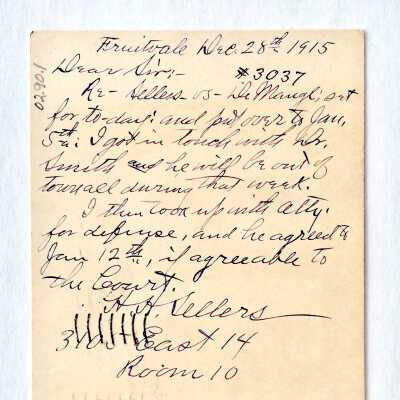 Fruitvale Dec. 28th 1915
Dear Sir:-
#3037
Re- Sellers vs- De Mangl; set
for, to-day: and put over to Jan,
5th: I got in touch with Dr.
Smith and he will be out of
town all during that week.
I then took up with atty.
for defense, and he agreed to
Jan 12th, if agreeable to
the Court.
H. H. Sellers
East 14
Room 10
02901